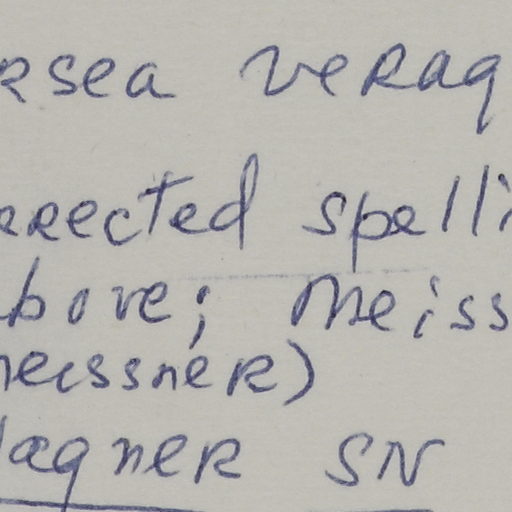 rsea veraq
rrected spelli
bove; Meiss
neissner)
Wagner SN